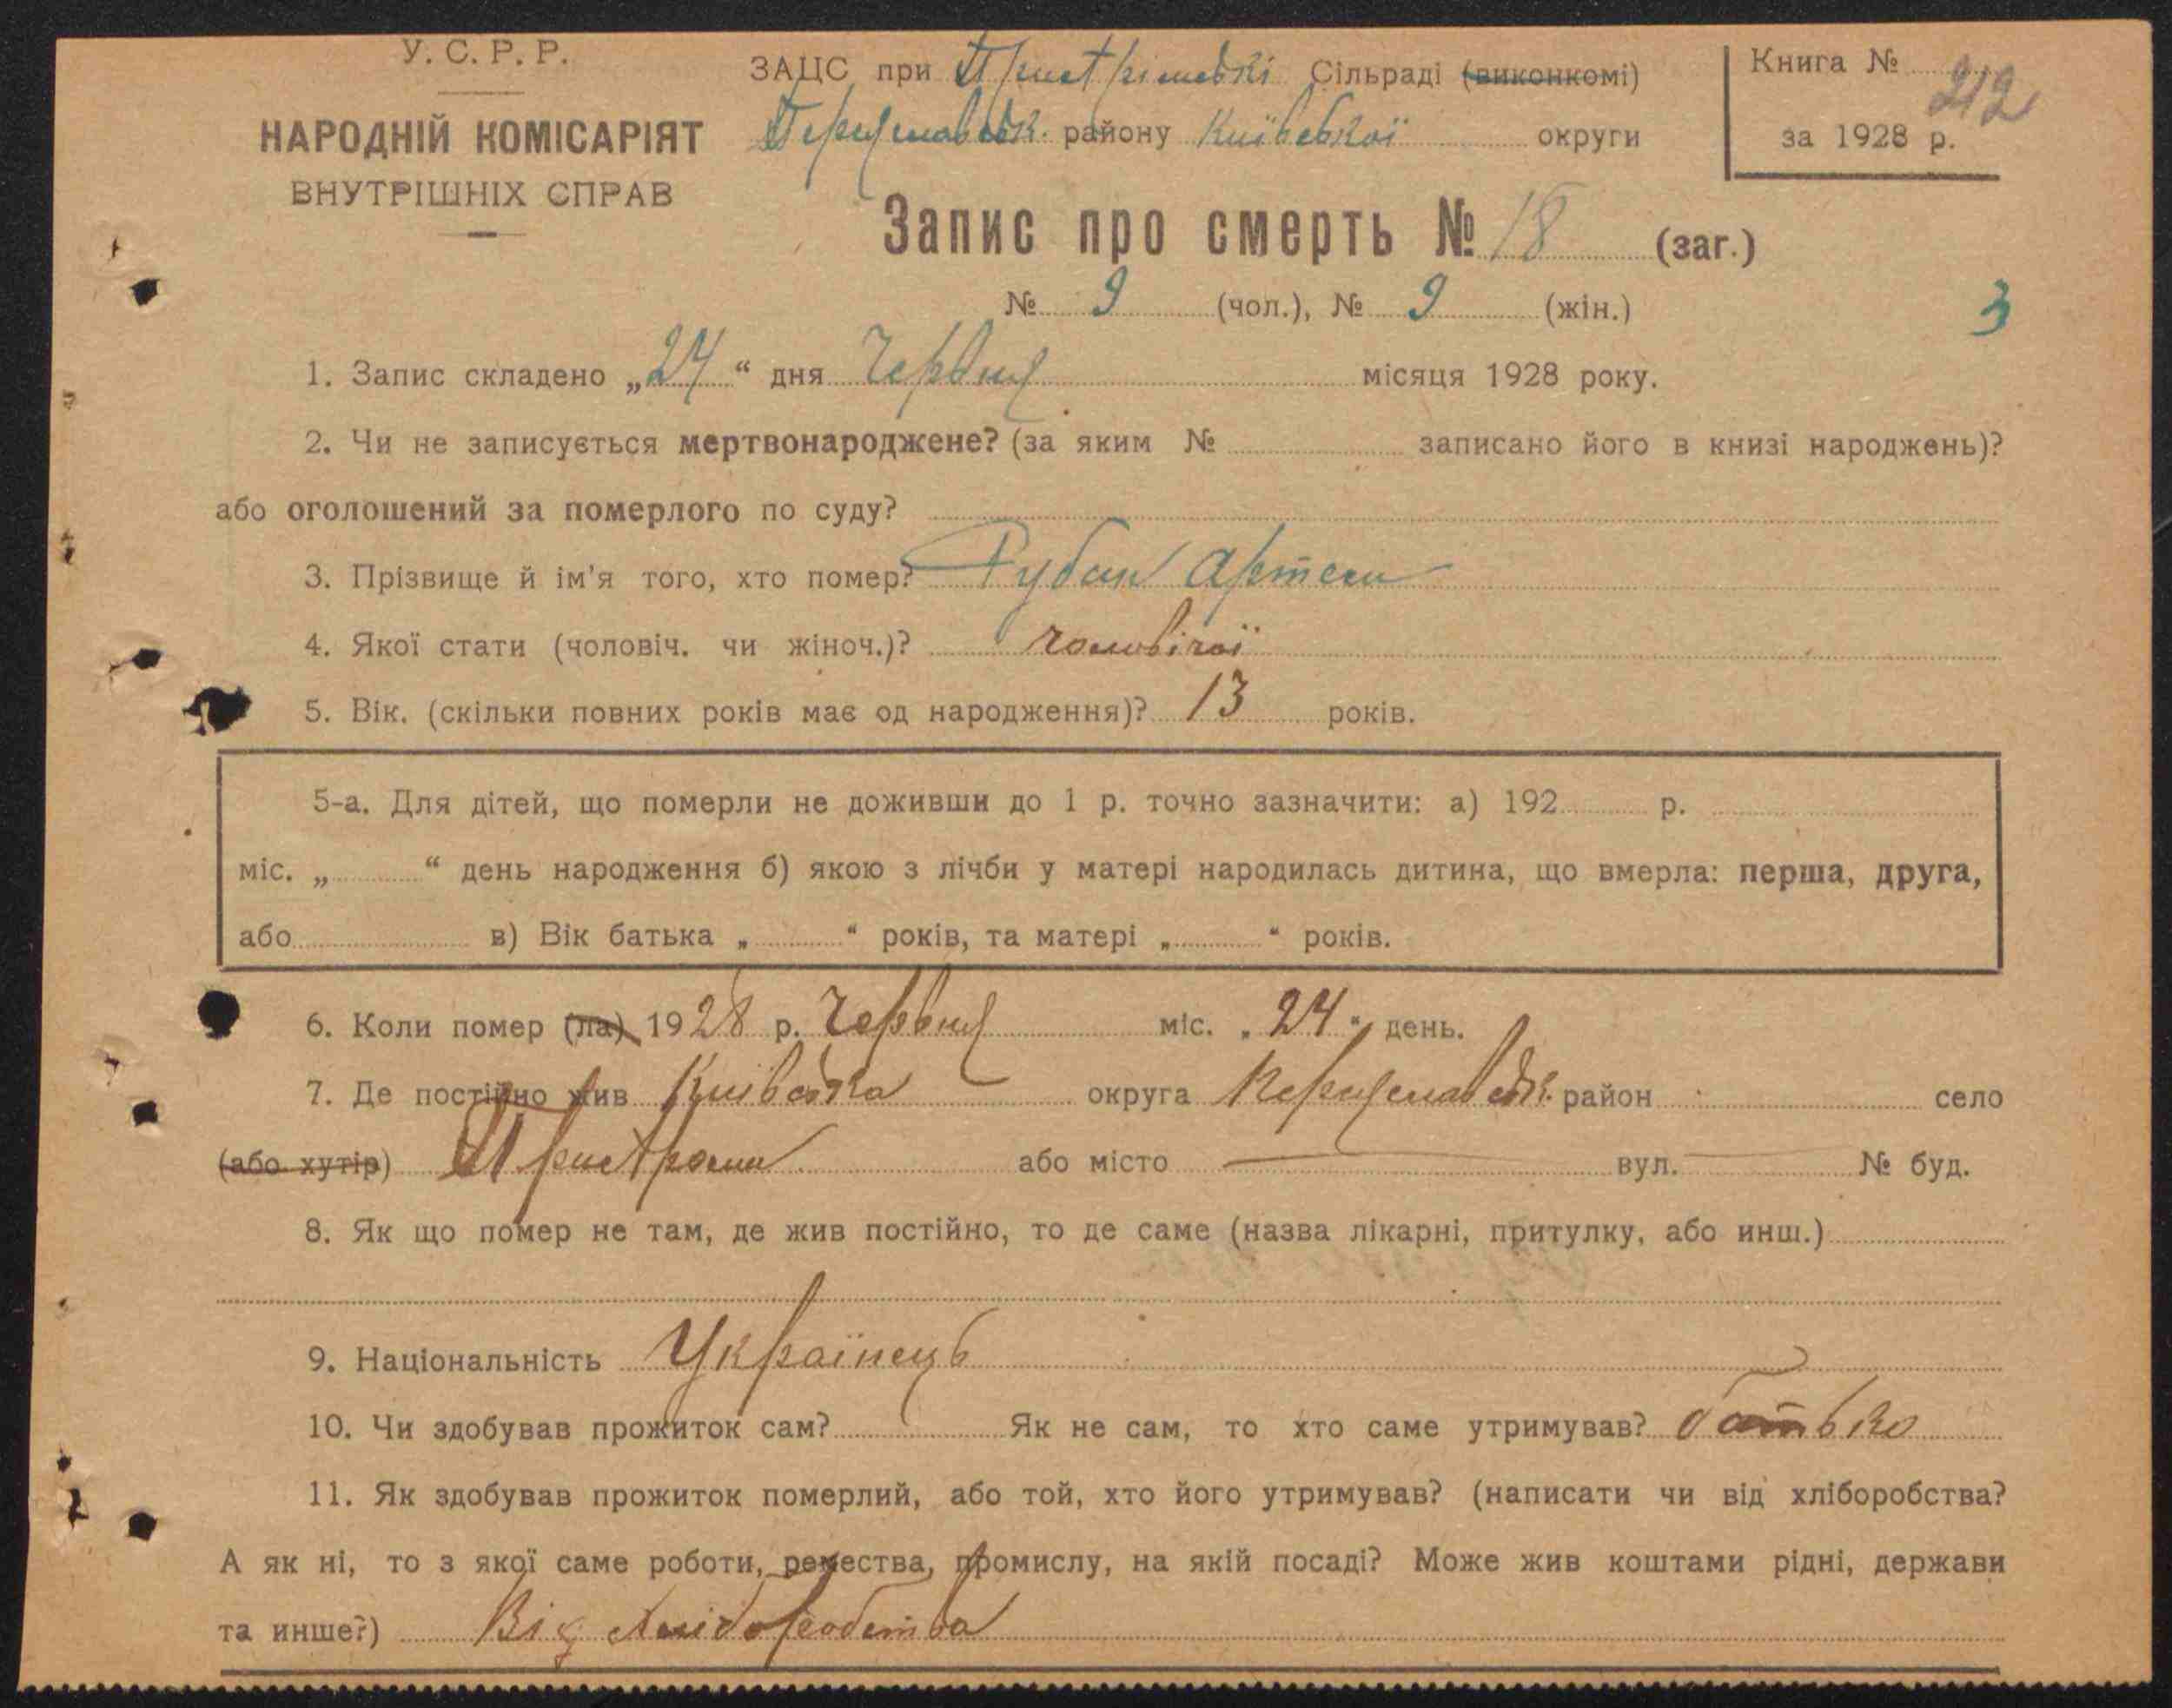 У.С.Р.Р.
НАРОДНІЙ КОМІСАРІЯТ
ВНУТРІШНІХ СПРАВ
ЗАЦС при Пристрімській Сільраді (виконкомі)
Переяславськ. району Київської округи
Книга № 212
за 1928 р.
Запис про смерть № 18 (заг.)
№ 9 (чол.), № 9 (жін.)
3
1. Запис складено „24“ дня Червня місяця 1928 року.
2. Чи не записується мертвонароджене? (за яким № записано його в книзі народжень)?
або оголошений за померлого по суду?
3. Прізвище й ім'я того, хто помер? Рубан Артем
4. Якої стати (чоловіч. чи жіноч.)? чоловічої
5. Вік. (скільки повних років має од народження)? 13 років.
5-а. Для дітей, що померли не доживши до 1 р. точно зазначити: а) 192 р.
міс. „ “ день народження б) якою з лічби у матері народилась дитина, що вмерла: перша, друга,
або в) Вік батька „ “ років, та матері „ “ років.
6. Коли помер (ла) 1928 р. Червня міс. „24“ день.
7. Де постійно жив Київська округа Переяславськ. район село
(або хутір) Пристроми або місто — вул. — № буд.
8. Як що помер не там, де жив постійно, то де саме (назва лікарні, притулку, або инш.)
9. Національність Українець
10. Чи здобував прожиток сам? Як не сам, то хто саме утримував? батько
11. Як здобував прожиток померлий, або той, хто його утримував? (написати чи від хліборобства?
А як ні, то з якої саме роботи, ремества, промислу, на якій посаді? Може жив коштами рідні, держави
та инше?) Від хліборобства